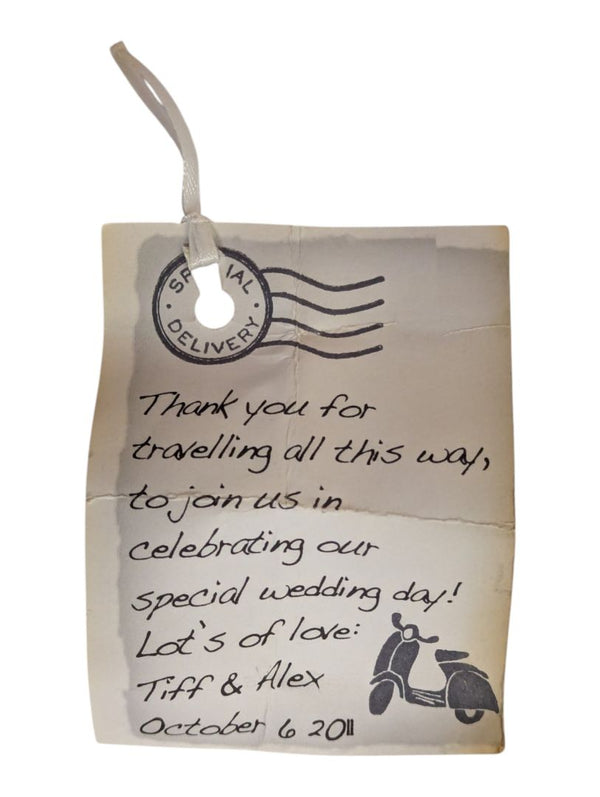 SPECIAL
DELIVERY
Thank you for
travelling all this way,
to join us in
celebrating our
special wedding day!
Lot's of love:
Tiff & Alex
October 6 2011